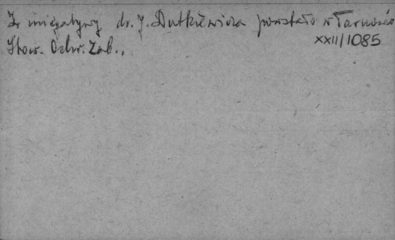 Z inicjatywy dr. J. Dutkiewicza powstało w Tarnowie
XXII/1085
Stow. Ochr. Zab.,